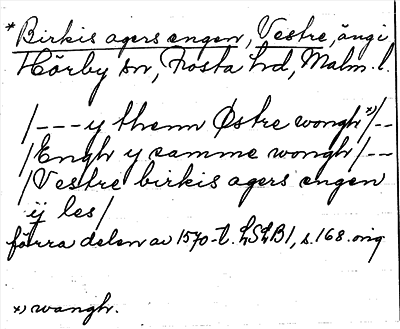 *Birkis agers engen, Vestre, äng i
Hörby sn, Frosta hd, Malm. l.
/---y themn Østre wongh *)/--
/Engh y samme wongh/--
/Vestre birkis agers engen
ij les/
förra delen av 1570-t. LSLB1, s. 168. orig
*) wangh.